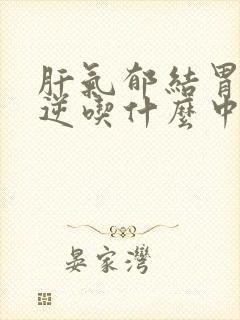 肝氣郁結胃
逆喫什麽中
晏家灣